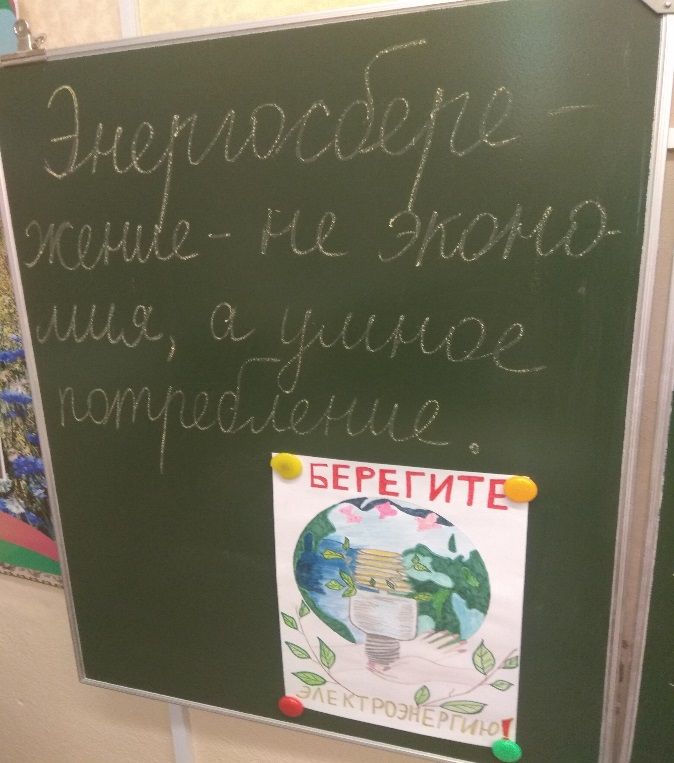 Энергосбере-
жение - не эконо-
мия, а умное
потребление.
БЕРЕГИТЕ
ЭЛЕКТРОЭНЕРГИЮ!